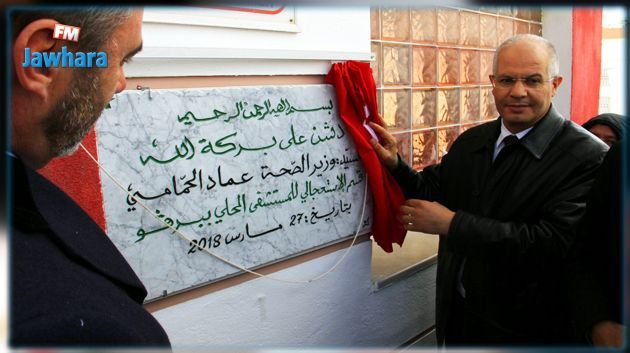 FM
Jawhara
بسم الله الرحمن الرحيم
دشن على بركة الله
السيد: وزير الصحة عماد الحمامي
قسم الإستعجالي للمستشفى المحلي ببرقو
بتاريخ: 27 مارس 2018